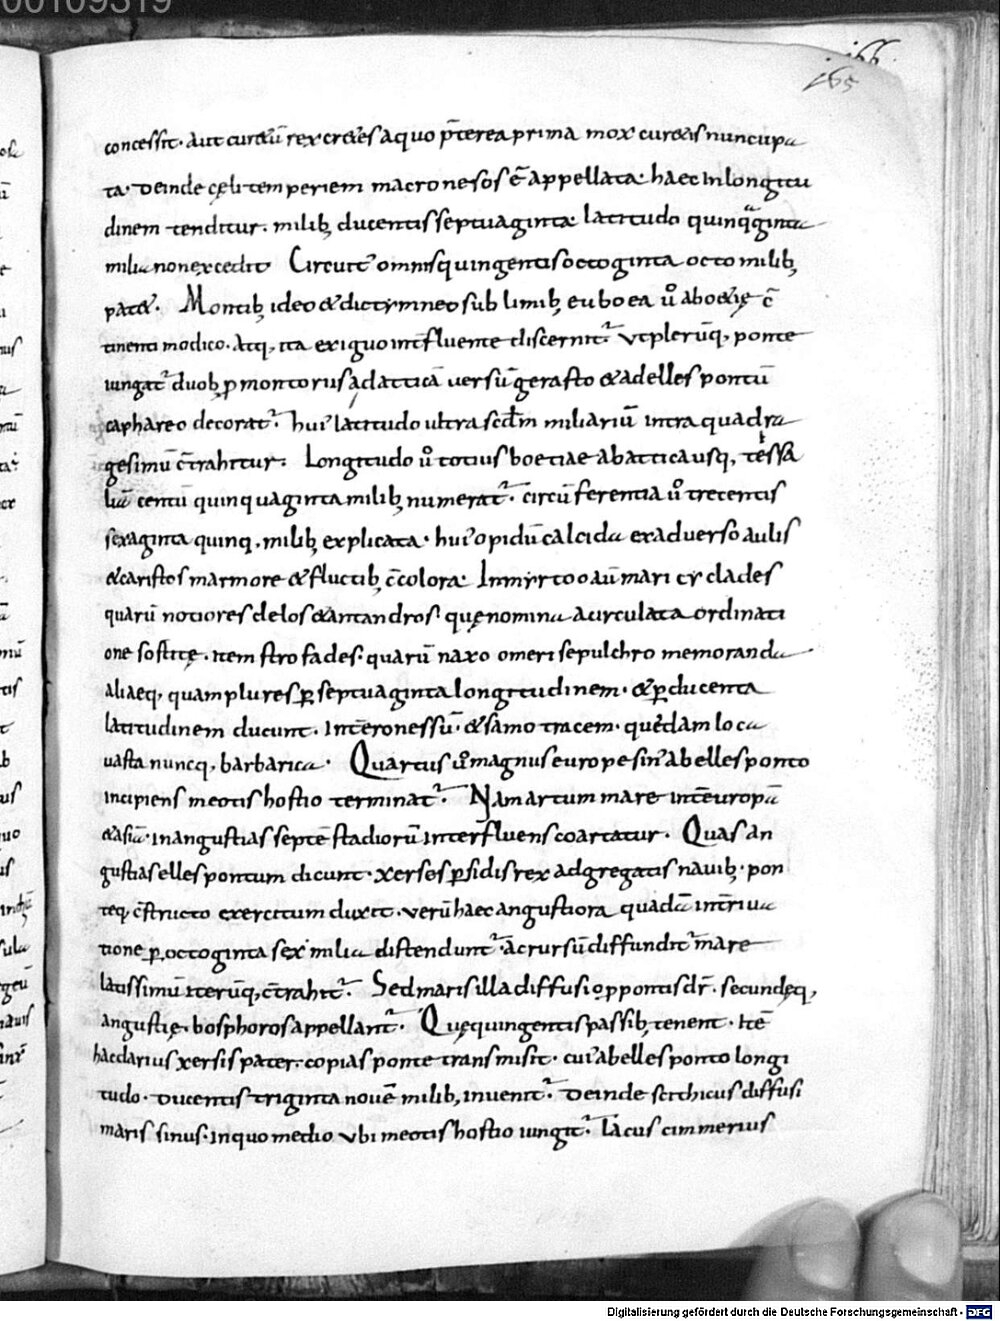 00109319
166
165
concessit· aut curetũ rex cretes a quo p̃terea prima mox curetis nuncupa
ta· deinde cęli temperiem macronesos ẽ appellata· haec In longitu
dinem tenditur· milib; ducentis septuaginta latitudo quinq̃ginta
milia non excedit Circuit᾽ omnis quingentis octoginta octo milib;
patet. Montib; ideo & dictymneo sublimib; euboea ũ a boetię c̃
tinenti modico· Atq, ita exiguo int̃fluente discernit᷑ Vt plerũq, ponte
iungat᷑ duob; ꝓmontoriis ad atticã uersũ gerasto & ad ellespontũ
caphareo decorat᷑· hui᾽ latitudo ultra scdm̃ miliariũ intra quadra
gesimũ c̃trahitur· Longitudo ũ totius boetiae ab attica usq, tessa
liã centũ quinquaginta milib; numerat᷑· circũferentia ũ trecentis
sexaginta quinq, milib; explicata· hui᾽ opidũ calcida ex aduerso aulis
& caristos marmore & fluctib; c̃colora· In myrtoo aũ mari cyclades
quarũ notiores delos & antandros· quę nomina a circulata ordinati
one sortitę· item strofades· quarũ naxo omeri sepulchro memoranda
aliaeq, quam plures ꝑ septuaginta longitudinem· & ꝑ ducenta
latitudinem ducunt· Int̃ eronessũ· & samo tracem· quedam loca
uasta nuncq, barbarica· Quartus ũ magnus europe sin᾽ ab ellesponto
incipiens meotis hostio terminat᷑· Nam artum mare int̃ europã
& asiã· in angustias septẽ stadiorũ interfluens coartatur· Quas an
gustias ellespontum dicunt· xerses ꝑsidis rex adgregatis nauib;· pon
teq, c̃structo exercitum duxit· uerũ haec angustiora quadã int̃riua
tione ꝑ octoginta sex milia distendunt᷑· ac rursũ diffundit᷑ mare
latissimũ iterũq, c̃trahit᷑· Sed maris illa diffusio pponti s dr̃· secundęq,
angustię· bosphoros appellant᷑· Quę quingentis passib; tenent· Itẽ
hac darius xersis pater· copias ponte transmisit· cui᾽ ab ellesponto longi
tudo· ducentis triginta nouẽ milib, inuenit᷑· deinde scithicus diffusi
maris sinus· in quo medio vbi meotis hostio iungit᷑· lacus cimmerius
Digitalisierung gefördert durch die Deutsche Forschungsgemeinschaft - DFG